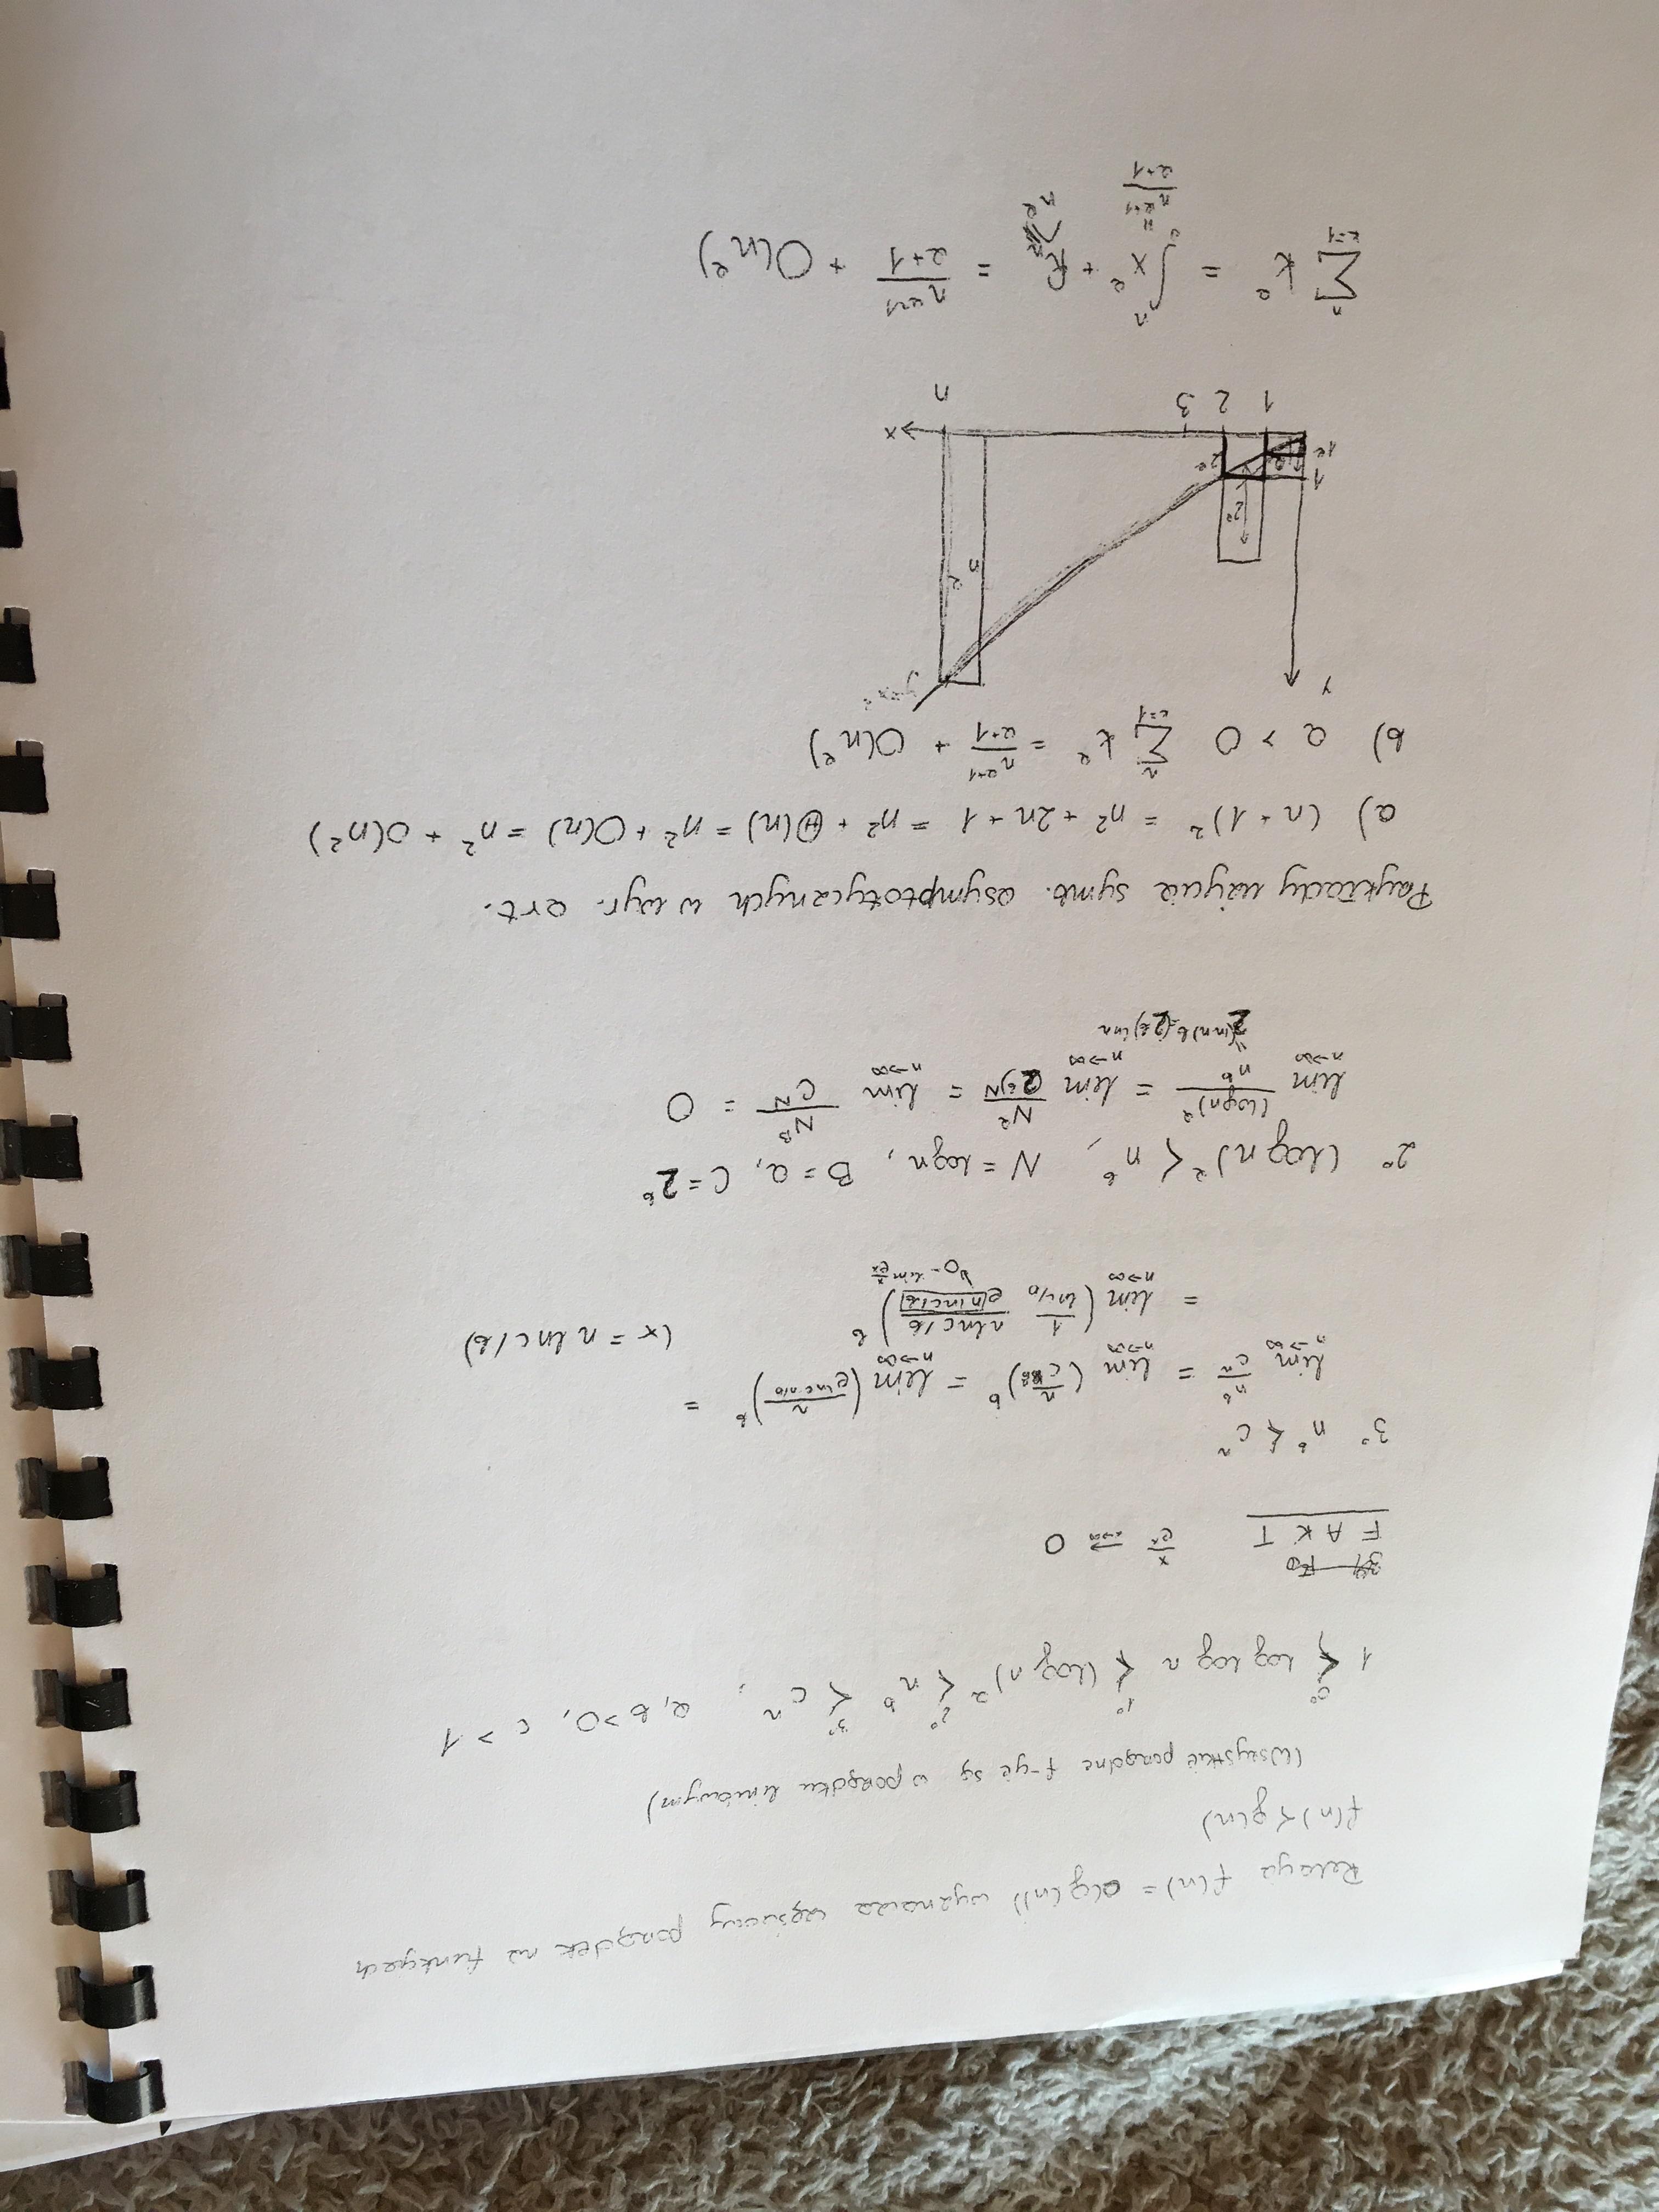 Relacja f(n) = o(g(n)) wyznacza częściowy porządek na funkcjach
f(n) ≺ g(n)
(Wszystkie porządne f-cje są w porządku liniowym)
1 ≺⁰° log log n ≺¹° (log n)^a ≺²° n^b ≺³° c^n, a, b > 0, c > 1
FAKT x/e^x →_{x→∞} 0
3° n^b ≺ c^n
lim_{n→∞} n^b/c^n = lim_{n→∞} (n/c^{n/b})^b = lim_{n→∞} (n/e^{ln c n/b})^b =
= lim_{n→∞} (1/(ln c/b) · (n ln c/b)/e^{n ln c/b})^b (x = n ln c/b)
↳ 0 = lim x/e^x
2° (log n)^a ≺ n^b, N = log n, B = a, C = 2^b
lim_{n→∞} (log n)^a/n^b = lim_{n→∞} N^a/(2^b)^N = lim_{n→∞} N^B/C^N = 0
2^{(ln n) b} = (2^b)^{ln n}
Przykłady użycia symb. asymptotycznych w wyr. art.
a) (n+1)^2 = n^2 + 2n + 1 = n^2 + Θ(n) = n^2 + O(n) = n^2 + o(n^2)
b) a > 0 ∑_{k=1}^{n} k^a = n^{a+1}/(a+1) + O(n^a)
y
y=x^a
n^a
2^a
1
1^a
2^a
x
1 2 3 n
∑_{k=1}^{n} k^a = ∫_0^n x^a + R_n = n^{a+1}/(a+1) + O(n^a)
n^{a+1}/(a+1)
n^a